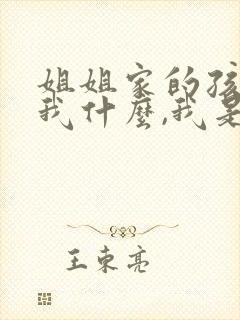 姐姐家的孩
我什麼,我是
王東亮